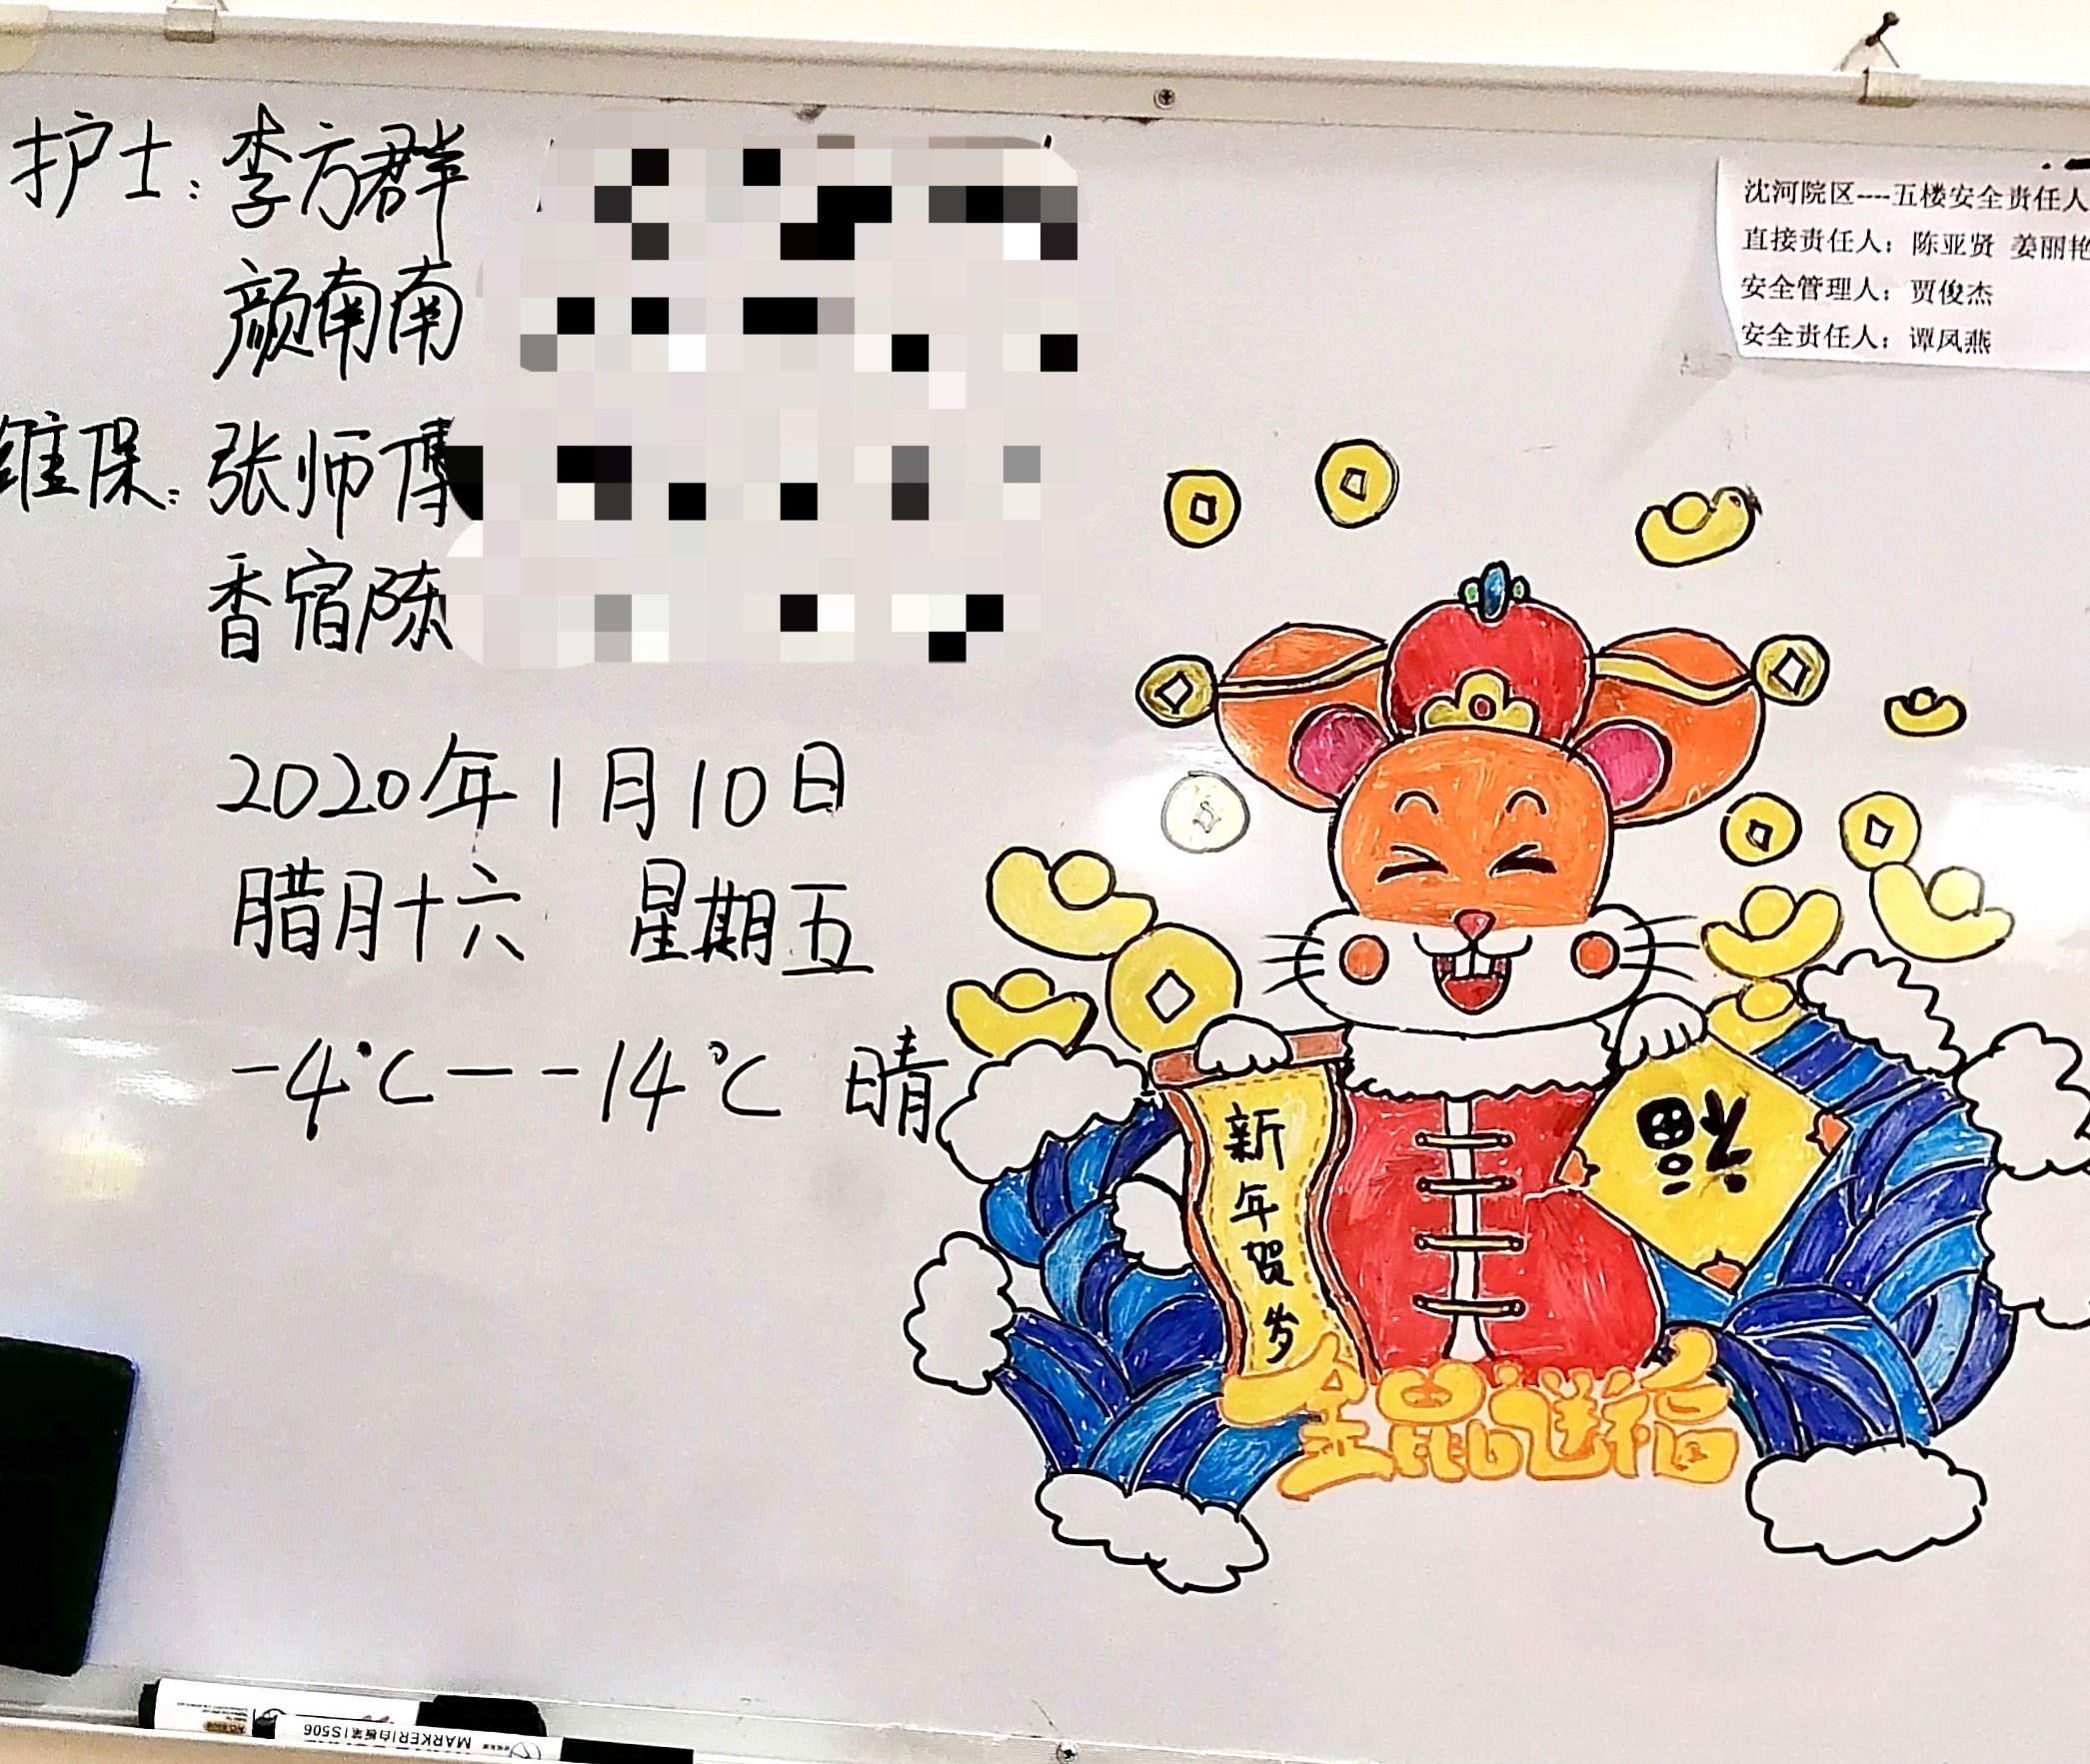 护士：李方群
颜南南
维保：张师傅
香宿陈
2020年1月10日
腊月十六 星期五
-4℃—-14℃ 晴
沈河院区----五楼安全责任人
直接责任人：陈亚贤 姜丽艳
安全管理人：贾俊杰
安全责任人：谭凤燕
新年贺岁
福
金鼠送福
MARKER|白板笔|S506